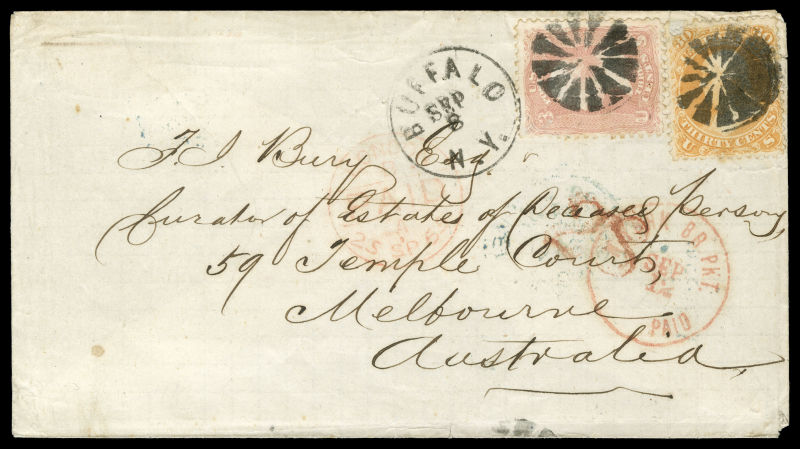 BUFFALO
SEP
8
N.Y.
30 30
THIRTY CENTS
U S
3 U
F. J. Bury Esq.
Curator of Estates of Deceased Persons,
59 Temple Court,
Melbourne
Australia
28
BR PKT.
SEP
PAID